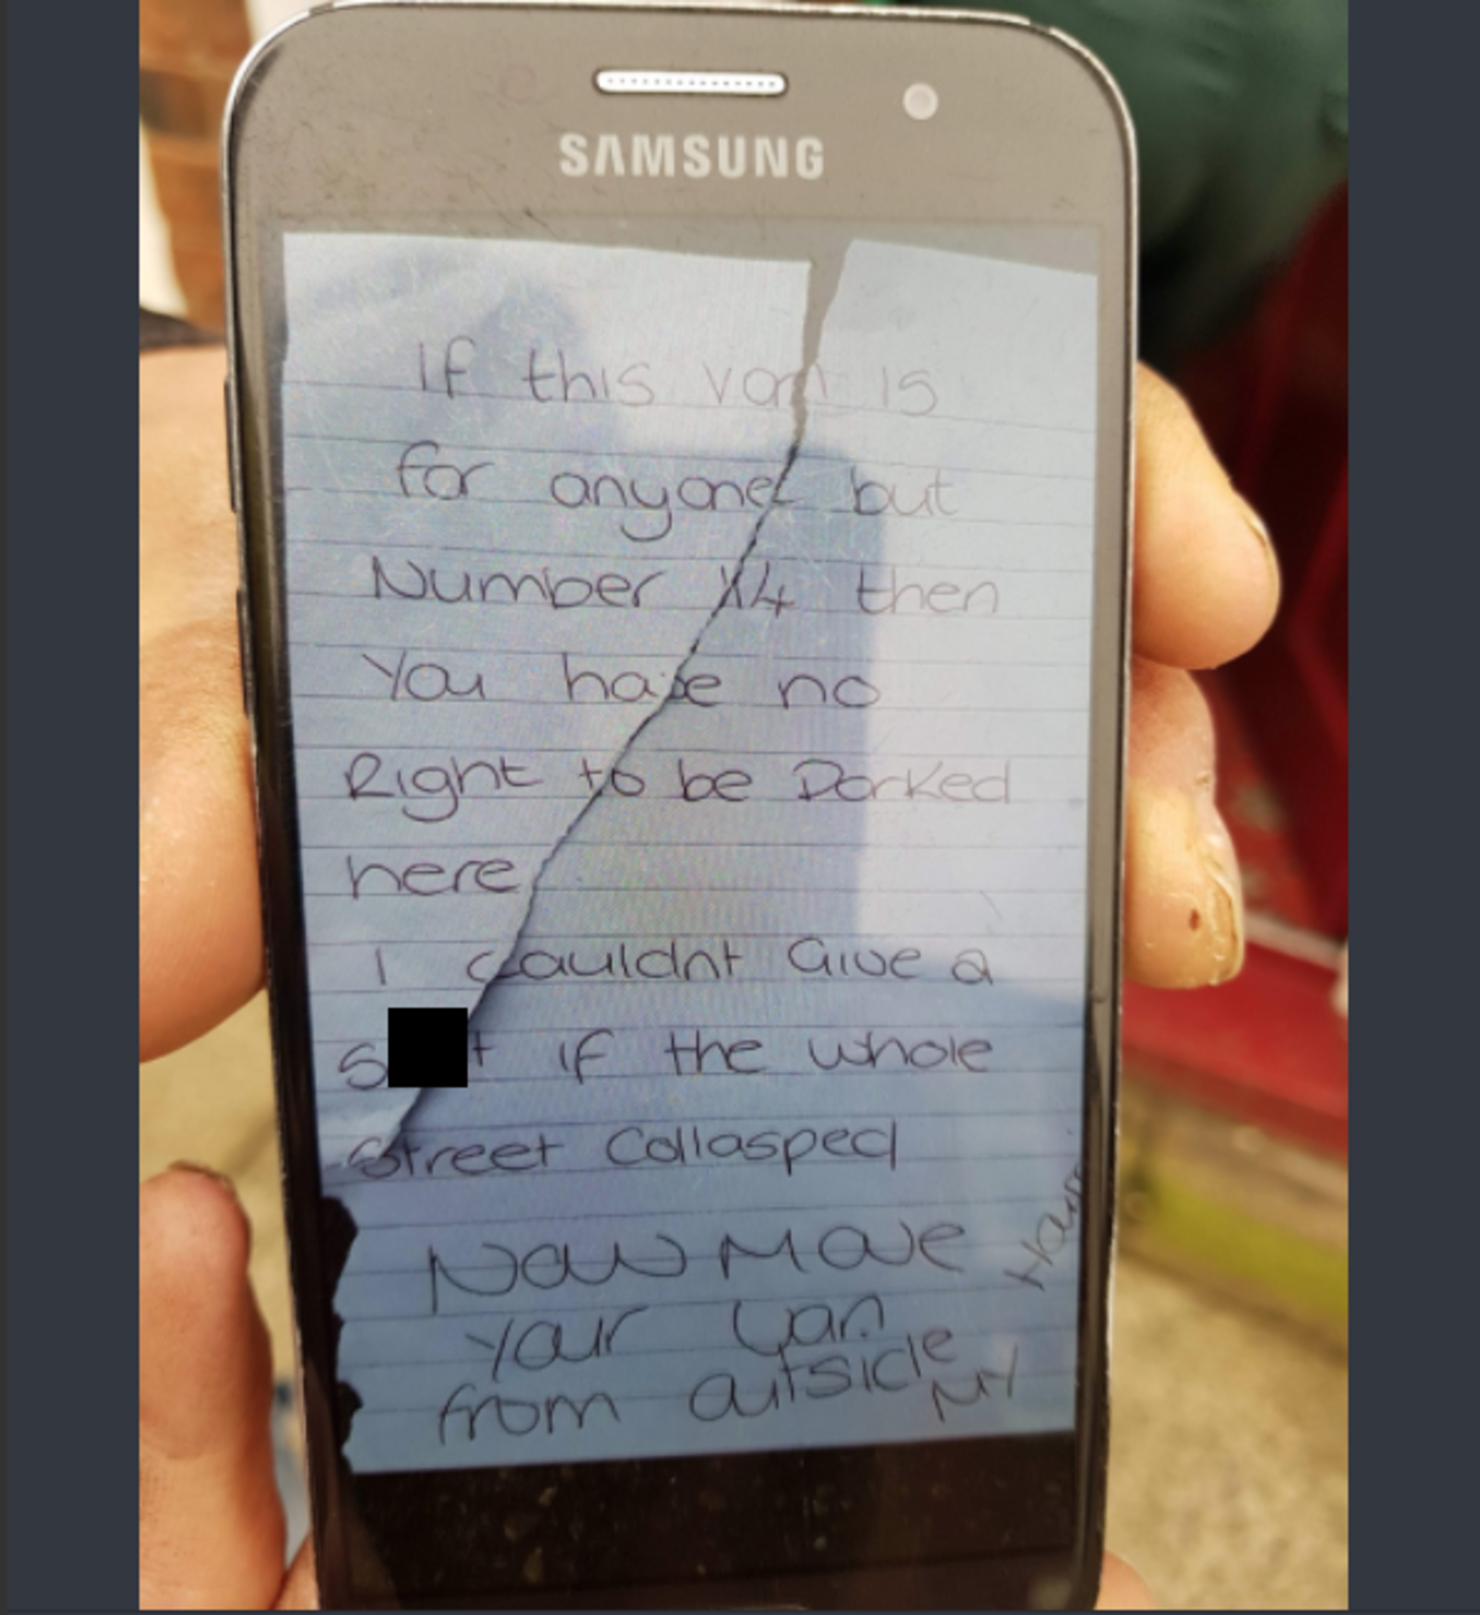 SAMSUNG
If this van is
for anyone but
Number 14 then
You have no
Right to be Parked
here
I couldnt Give a
S t if the whole
Street Collasped
Now Move
your Van
from outside
MY